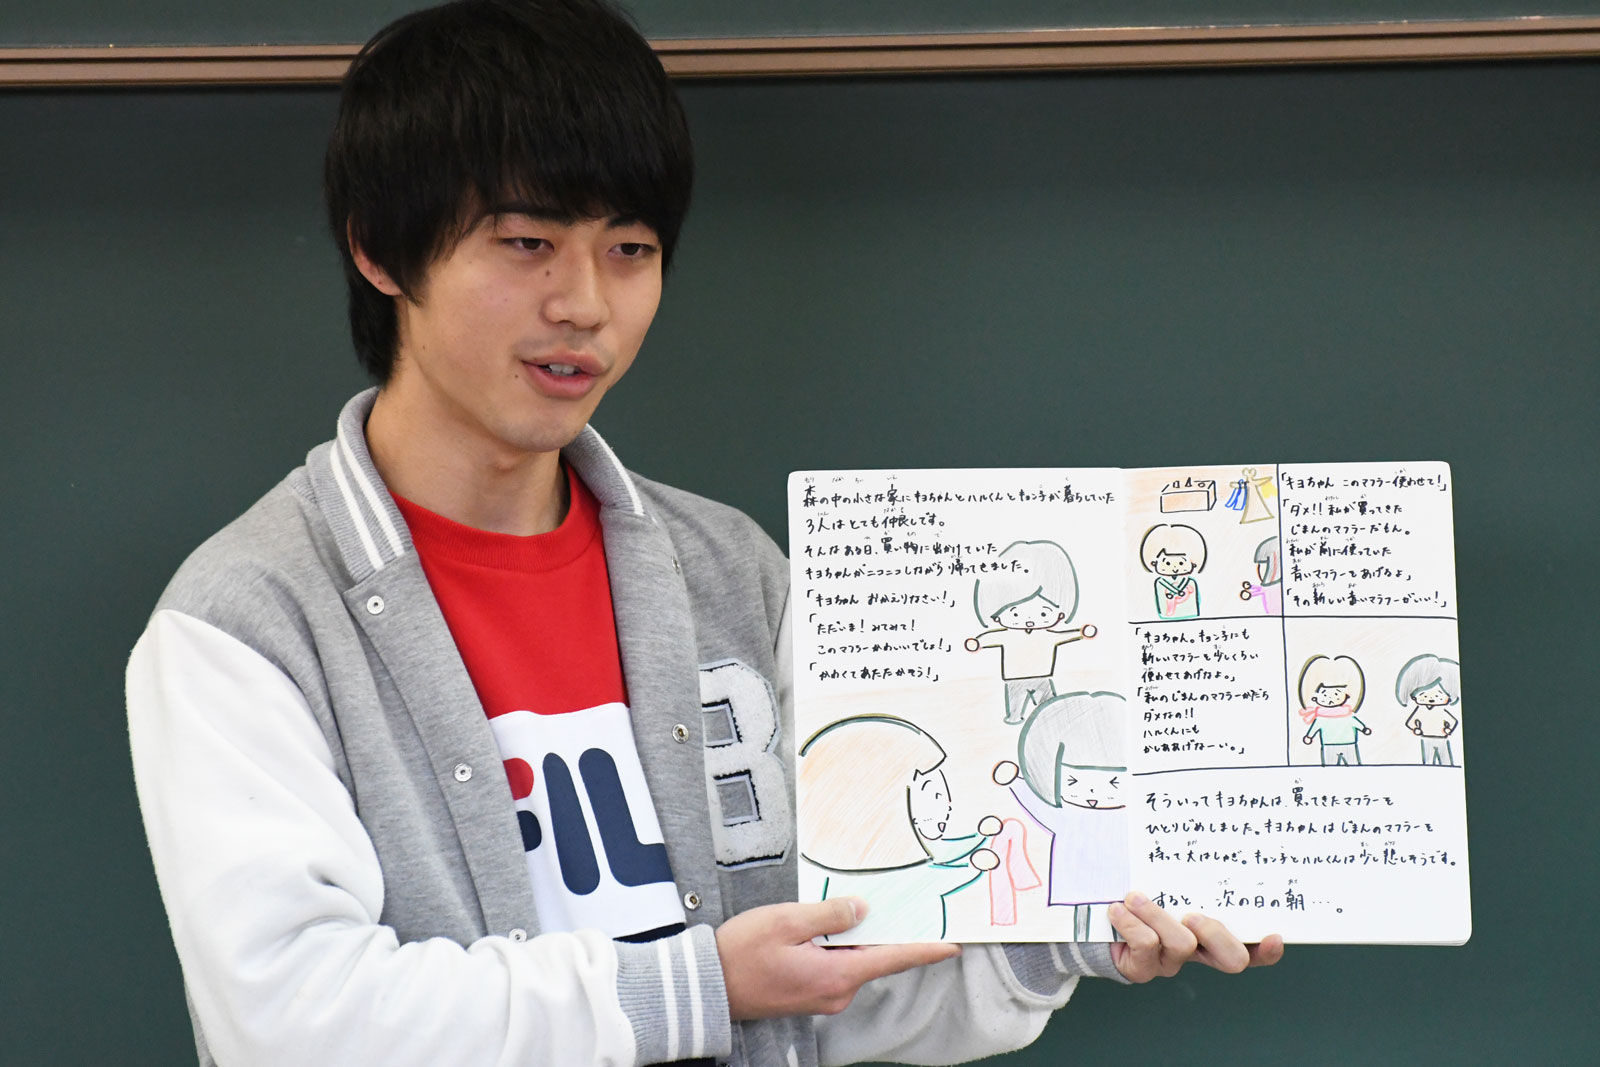 森の中の小さな家にキヨちゃんとハルくんとキョン子が暮らしていた
3人はとても仲良しです。
そんなある日、買い物に出かけていた
キヨちゃんがニコニコしながら帰ってきました。
「キヨちゃん おかえりなさい！」
「ただいま！みてみて！
このマフラーかわいいでしょ！」
「かわくてあたたかそう！」
「キヨちゃん このマフラー使わせて！」
「ダメ!! 私が買ってきた
じまんのマフラーだもん。
私が前に使っていた
青いマフラーをあげるよ」
「その新しい青いマフラーがいい！」
「キヨちゃん。キョン子にも
新しいマフラーを少しくらい
使わせてあげなよ。」
「私のじまんのマフラーだから
ダメなの!!
ハルくんにも
かしああげなーい。」
そういってキヨちゃんは、買ってきたマフラーを
ひとりじめしました。キヨちゃんはじまんのマフラーを
持って大はしゃぎ。キョン子とハルくんは少し悲しそうです。
すると、次の日の朝…。
FILA
B